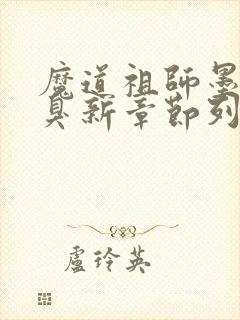 魔道祖師墨
臭新章節列
盧玲英